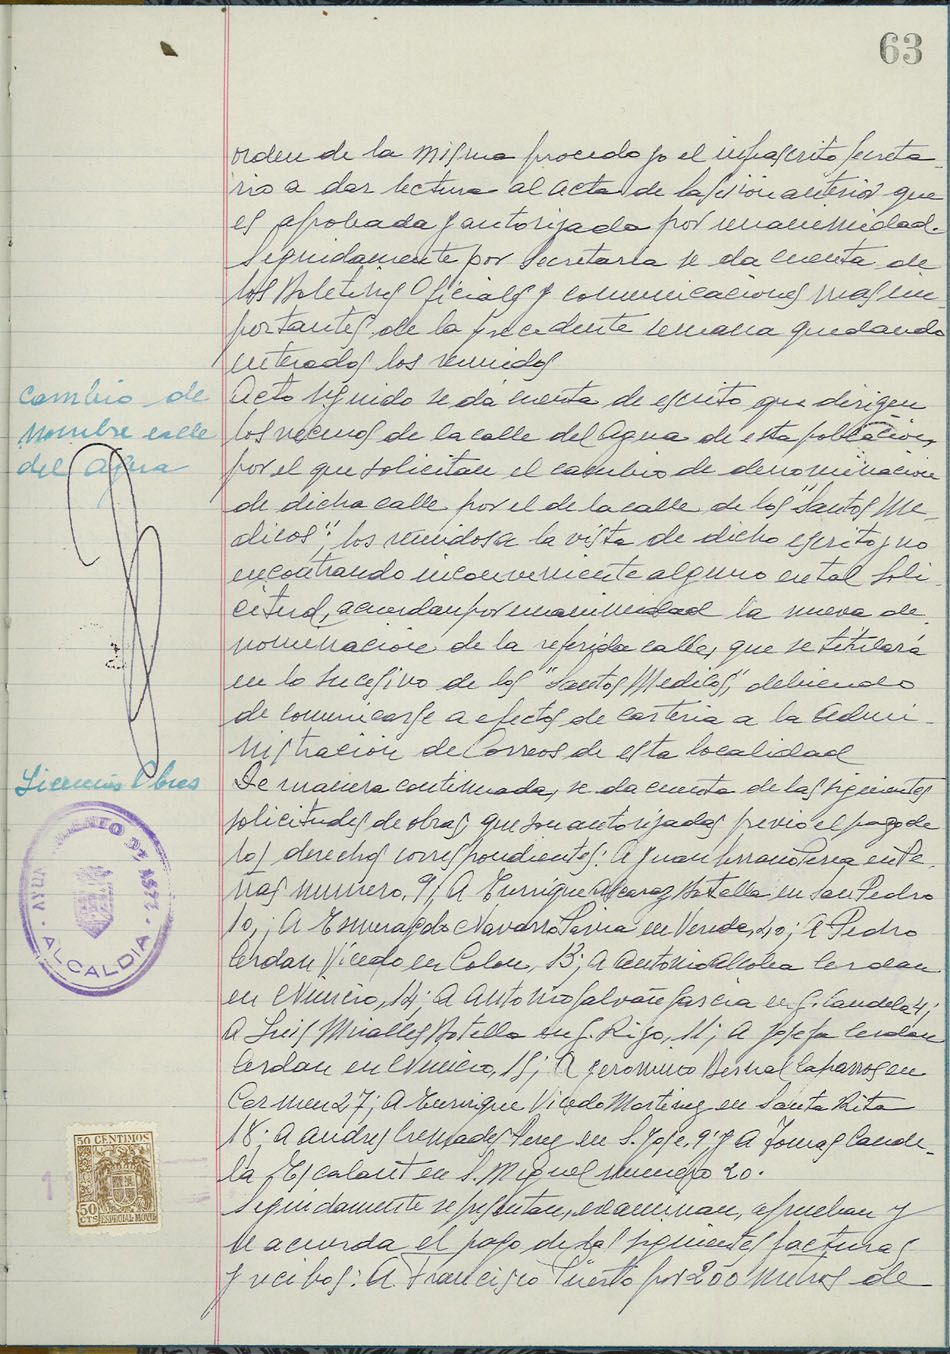 63
orden de la misma procedo yo el infrascrito Secreta-
rio a dar lectura al acta de la sesión anterior que
es aprobada y autorizada por unanimidad.
Seguidamente por Secretaria se da cuenta de
los Boletines Oficiales y comunicaciones mas im-
portantes de la precedente semana quedando
enterados los reunidos
Cambio de
nombre calle
del Agua
Acto seguido se dá cuenta de escrito que dirigen
los vecinos de la calle del Agua de esta población,
por el que solicitan el cambio de denominación
de dicha calle por el de la calle de los "Santos Mé-
dicos"; los reunidos a la vista de dicho escrito y no
encontrando inconveniente alguno en tal soli-
citud, acuerdan por unanimidad la nueva de-
nominación de la referida calle, que se titulará
en lo sucesivo de los "Santos Medicos," debiendo
de comunicarse a efectos de cartería a la Admi-
nistración de Correos de esta localidad
Licencias Obras
De manera continuada, se da cuenta de las siguientes
solicitudes de obras, que son autorizadas previo el pago de
los derechos correspondientes: A Juan Serrano en Pe-
ñas numero, 9; A Enrique Alcaraz Botella en San Pedro
10,; A Esmeragdo Navarro en Vereda, 40; A Pedro
Cerdan Vicedo en Colon, 13; A Antonio Cerdan
en 14; A Antonio Galvañ Garcia en G. Candela 4;
A Luis Miralles Botella en G. Rizo, 11; A Josefa Cerdan
Cerdan en 15; A Geronimo Bernal Caparros en
Carmen 27; A Enrique Vicedo Martinez en Santa Rita
18; A Andres Cremades Perez en S. Jose, 9 y A Tomas Cande-
la Escalant en S. Miguel numero 20.
Seguidamente se presentan, examinan, aprueban y
se acuerda el pago de las siguientes facturas
y recibos: A Francisco Puerto por 200 metros de
AYUNTAMIENTO DE ASPE
ALCALDIA
50 CENTIMOS
50
CTS
ESPECIAL MOVIL